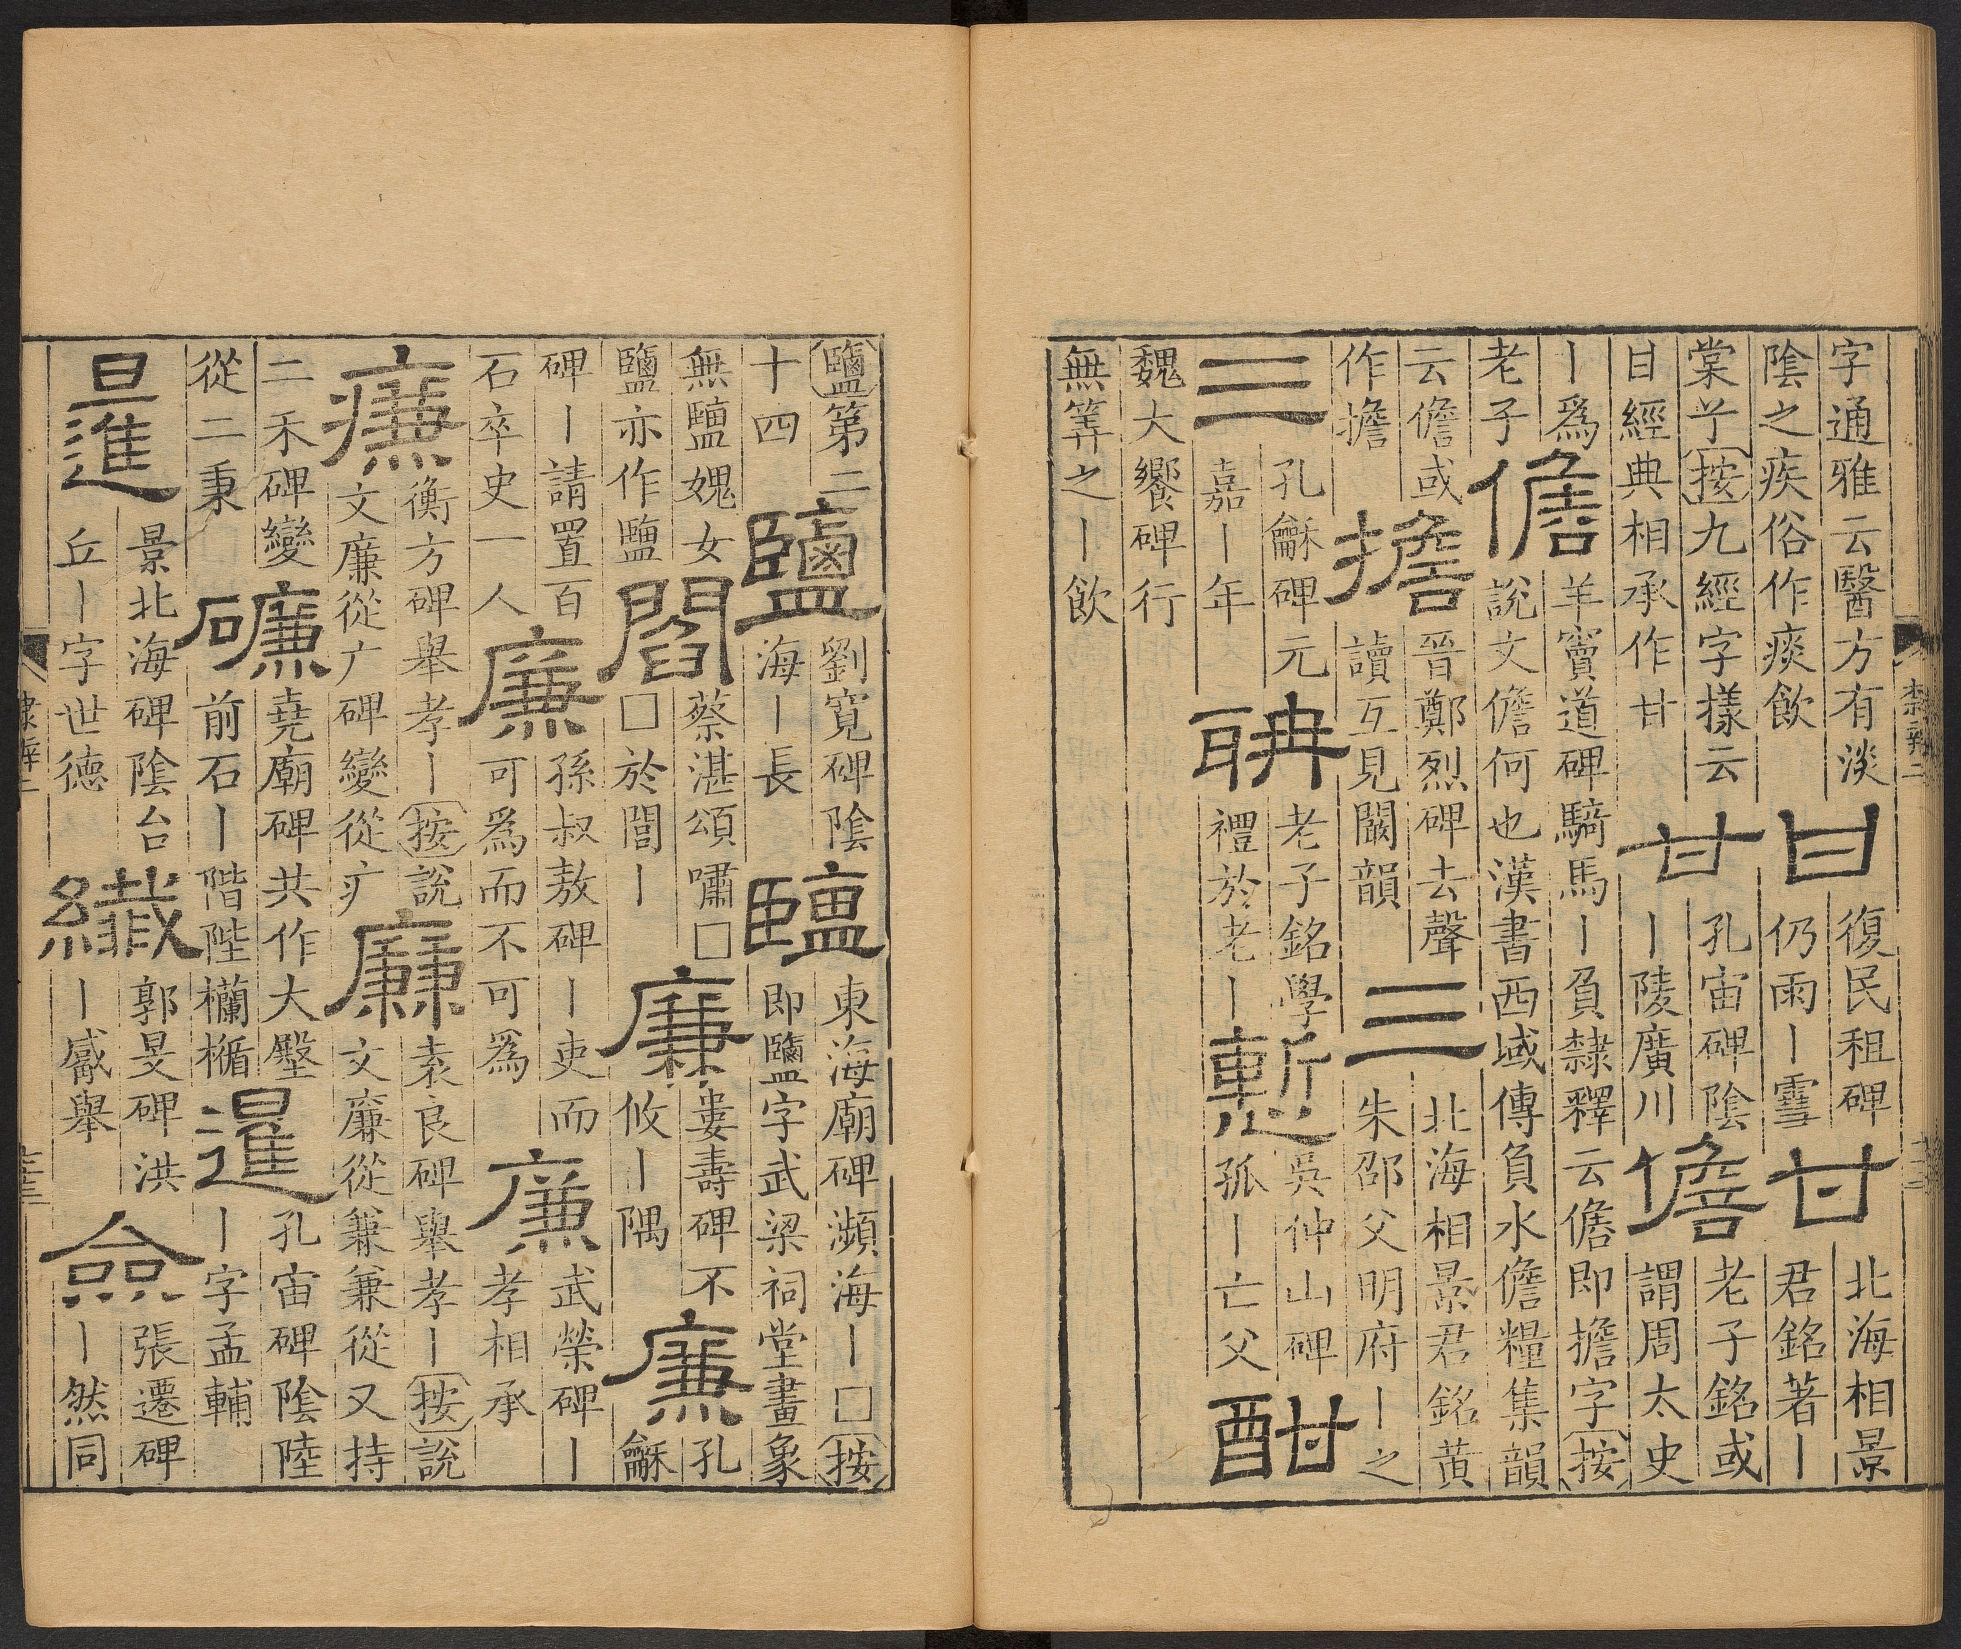 字通雅云醫方有淡陰之疾俗作痰飲甘復民租碑仍雨丨雪甘北海相景君銘著丨
棠丱按九經字㨾云甘經典相承作甘甘孔宙碑陰丨陵廣川儋老子銘或謂周太史
丨爲老子儋羊竇道碑騎馬丨負隸釋云儋即擔字按説文儋何也漢書西域傳負水儋糧集韻
云儋或作擔擔晉鄭烈碑去聲讀互見闞韻三北海相景君銘黄朱邵父明府丨之
三孔龢碑元嘉丨年聃老子銘學禮於老丨慙吳仲山碑孤丨亡父酣
魏大饗碑行無筭之丨飲
鹽第二十四鹽劉寬碑陰海丨長䀋東海廟碑瀕海丨□按即鹽字武梁祠堂畫象
無䀋媿女鹽亦作䀋閻蔡湛頌嘯□□於閭丨廉婁壽碑不攸丨隅廉孔龢
碑丨請置百石卒史一人廉孫叔敖碑丨吏而可爲而不可爲廉武榮碑丨孝相承
㾾衡方碑舉孝丨按説文廉從广碑變從疒廉袁良碑舉孝丨按説文廉從兼兼從又持
二禾碑變從二秉磏堯廟碑共作大殿前石丨階陛欄楯暹孔宙碑陰陸丨字孟輔
暹景北海碑陰台丘丨字世德纎郭旻碑洪丨嚴舉僉張遷碑丨然同